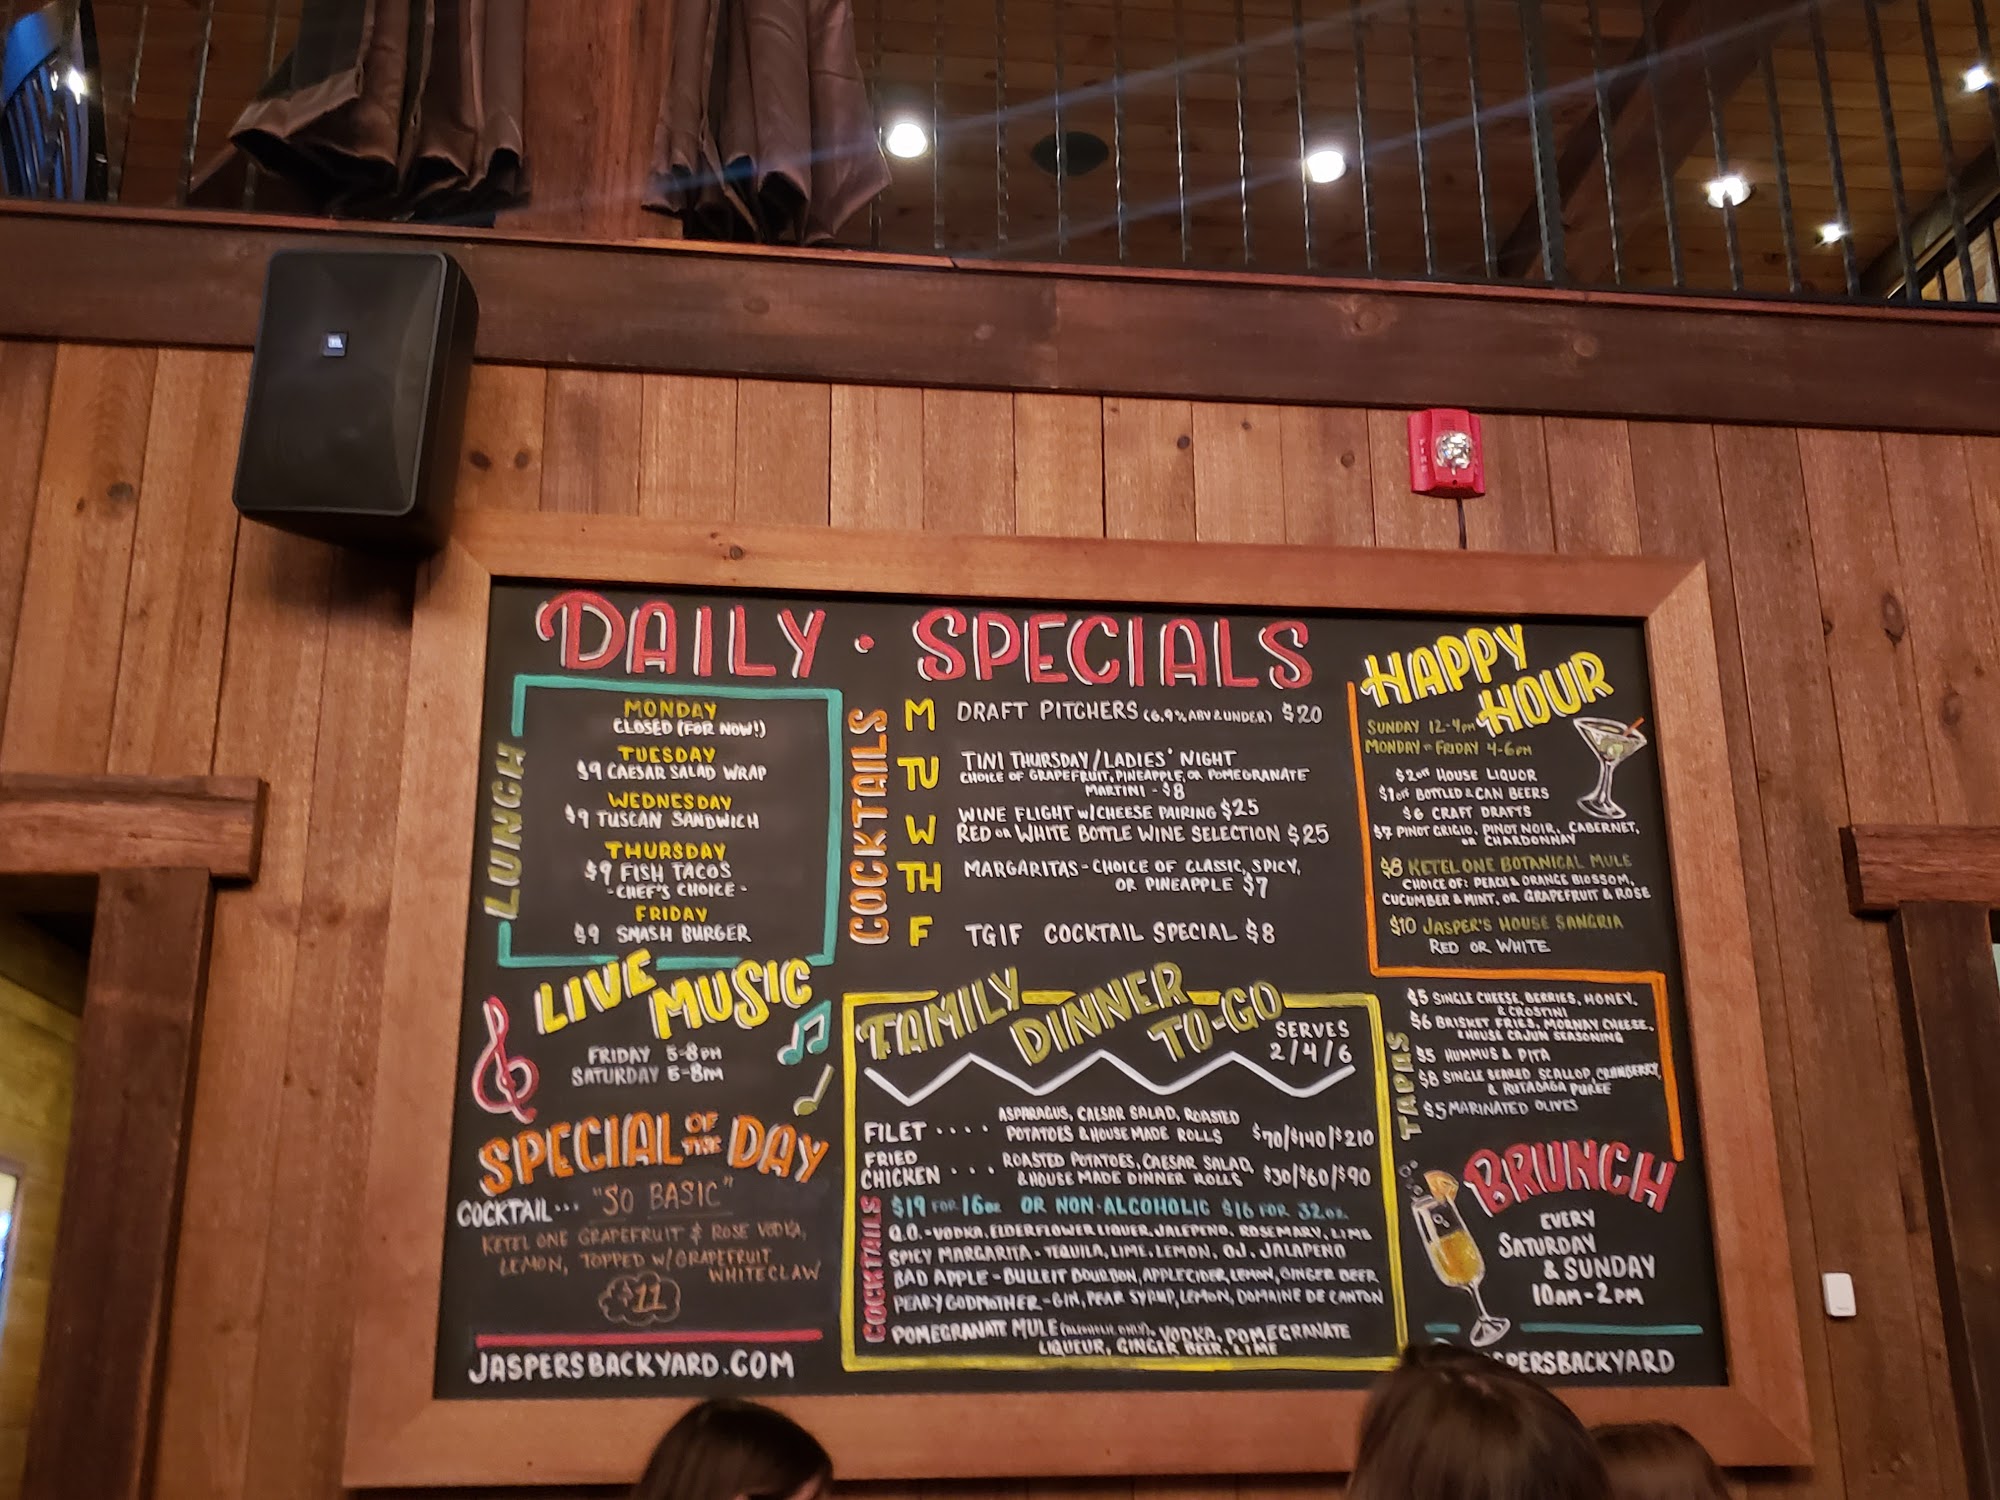 DAILY · SPECIALS
LUNCH
MONDAY
CLOSED (FOR NOW!)
TUESDAY
$9 CAESAR SALAD WRAP
WEDNESDAY
$9 TUSCAN SANDWICH
THURSDAY
$9 FISH TACOS
- CHEF'S CHOICE -
FRIDAY
$9 SMASH BURGER
COCKTAILS
M DRAFT PITCHERS (6.9% ABV & UNDER) $20
TU TINI THURSDAY/LADIES' NIGHT
CHOICE OF GRAPEFRUIT, PINEAPPLE, OR POMEGRANATE
MARTINI - $8
W WINE FLIGHT W/CHEESE PAIRING $25
RED OR WHITE BOTTLE WINE SELECTION $25
TH MARGARITAS - CHOICE OF CLASSIC, SPICY,
OR PINEAPPLE $7
F TGIF COCKTAIL SPECIAL $8
HAPPY
HOUR
SUNDAY 12-4PM
MONDAY - FRIDAY 4-6PM
$2 OFF HOUSE LIQUOR
$1 OFF BOTTLED & CAN BEERS
$6 CRAFT DRAFTS
$7 PINOT GRIGIO, PINOT NOIR, CABERNET,
OR CHARDONNAY
$8 KETEL ONE BOTANICAL MULE
CHOICE OF: PEACH & ORANGE BLOSSOM,
CUCUMBER & MINT, OR GRAPEFRUIT & ROSE
$10 JASPER'S HOUSE SANGRIA
RED OR WHITE
LIVE
MUSIC
FRIDAY 5-8PM
SATURDAY 5-8PM
SPECIAL OF THE DAY
COCKTAIL... "SO BASIC"
KETEL ONE GRAPEFRUIT & ROSE VODKA,
LEMON, TOPPED W/GRAPEFRUIT
WHITECLAW
$11
JASPERSBACKYARD.COM
FAMILY
DINNER
TO-GO
SERVES
2/4/6
FILET .... ASPARAGUS, CAESAR SALAD, ROASTED
POTATOES & HOUSE MADE ROLLS $70/$140/$210
FRIED
CHICKEN ... ROASTED POTATOES, CAESAR SALAD,
& HOUSE MADE DINNER ROLLS $30/$60/$90
COCKTAILS
$19 FOR 16oz OR NON-ALCOHOLIC $16 FOR 32oz
Q.O. - VODKA, ELDERFLOWER LIQUER, JALEPENO, ROSEMARY, LIME
SPICY MARGARITA - TEQUILA, LIME, LEMON, OJ, JALAPENO
BAD APPLE - BULLEIT BOURBON, APPLE CIDER, LEMON, GINGER BEER
PEARY GODMOTHER - GIN, PEAR SYRUP, LEMON, DOMAINE DE CANTON
POMEGRANATE MULE (ALCOHOLIC ONLY), VODKA, POMEGRANATE
LIQUEUR, GINGER BEER, LIME
TAPAS
$5 SINGLE CHEESE, BERRIES, HONEY,
& CROSTINI
$6 BRISKET FRIES, MORNAY CHEESE,
& HOUSE CAJUN SEASONING
$5 HUMMUS & PITA
$8 SINGLE SEARED SCALLOP, CRANBERRY,
& RUTABAGA PUREE
$5 MARINATED OLIVES
BRUNCH
EVERY
SATURDAY
& SUNDAY
10AM-2PM
SPERSBACKYARD
FIRE